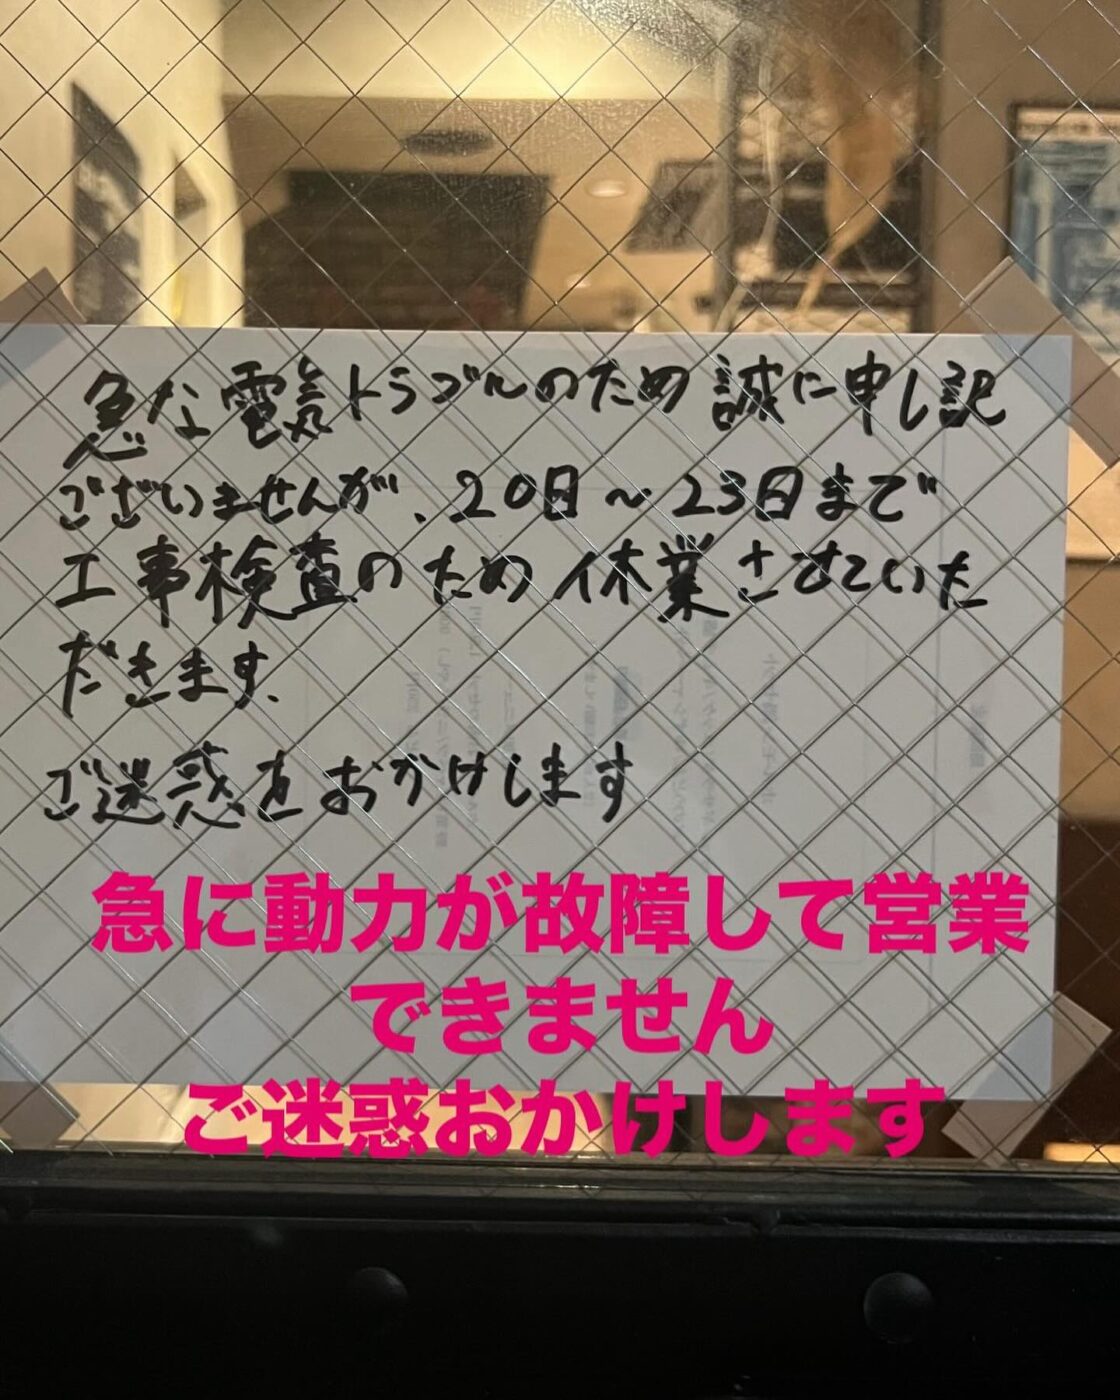 急な電気トラブルのため誠に申し訳
ございませんが、20日～23日まで
工事検査のため休業させていた
だきます、
ご迷惑をおかけします
急に動力が故障して営業
できません
ご迷惑おかけします